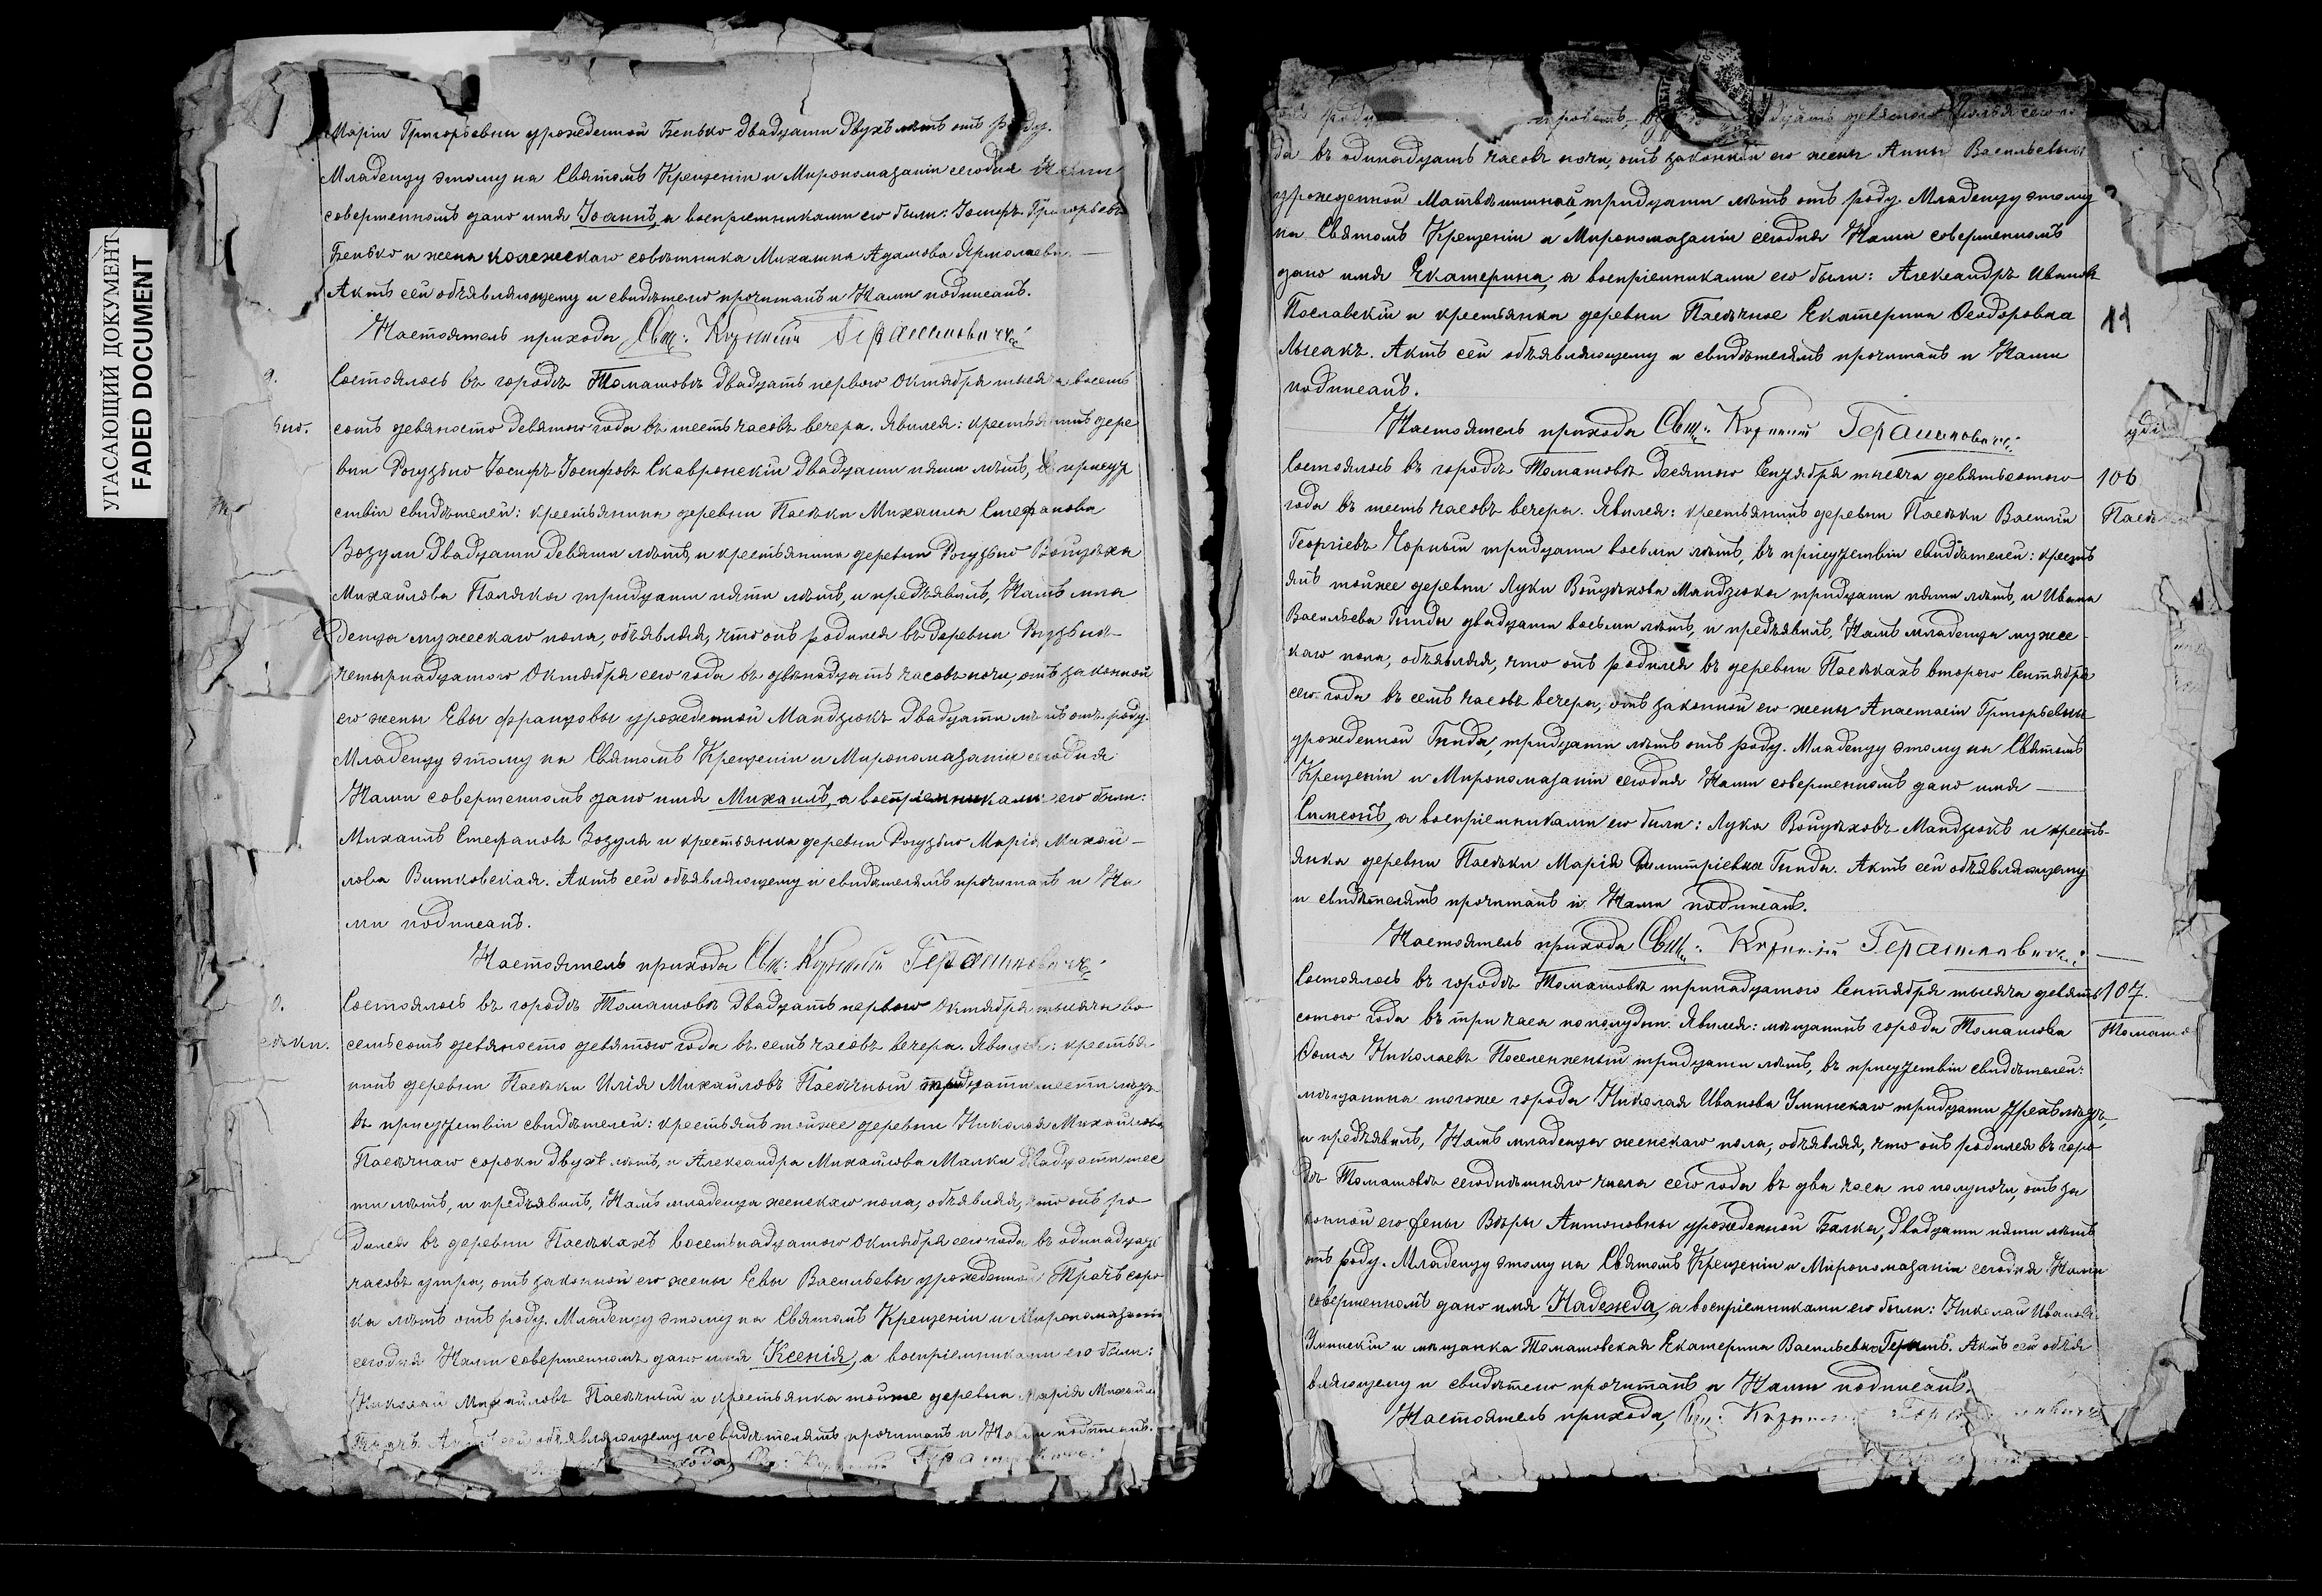 УГАСАЮЩИЙ ДОКУМЕНТ
FADED DOCUMENT
Маріи Григорьевны урожденной Бенько двадцати двухъ лѣтъ отъ роду.
Младенцу этому на Святомъ Крещеніи и Миропомазаніи сегодня Нами
совершенномъ дано имя Іоаннъ, а воспріемниками его были: Іосифъ Григорьевъ
Бенько и жена колежскаго совѣтника Михалина Адамова Ярмолаева.
Актъ сей объявляющему и свидѣтелю прочитанъ и Нами подписанъ.
Настоятель прихода Свщ: Корнилій Герашковичъ
9.
Состоялось въ городѣ Томашовѣ двадцать перваго Октября тысяча восемь
ьно.
сотъ девяносто девятого года въ шесть часовъ вечера. Явился: крестьянинъ дере
вни Рогузьно Іосифъ Іосифовъ Скавронскій двадцати пяти лѣтъ, въ присут
ствіи свидѣтелей: крестьянина деревни Пасѣки Михаила Стефанова
Зозули двадцати девяти лѣтъ, и крестьянина деревни Рогузьно Войцѣха
Михайлова Поляка тридцати пяти лѣтъ, и предъявилъ, Намъ мла
денца мужескаго пола, объявляя, что онъ родился въ деревни Рогузьно
четырнадцатого Октября сего года въ двѣнадцать часовъ ночи, отъ законной
его жены Евы Францовы урожденной Мандзюкъ двадцати лѣтъ отъ роду.
Младенцу этому на Святомъ Крещеніи и Миропомазаніи сегодня
Нами совершенномъ дано имя Михаилъ, а воспріемниками его были:
Михаилъ Стефановъ Зозуля и крестьянка деревни Рогузьно Марія Михай-
лова Витковская. Актъ сей объявляющему и свидѣтелямъ прочитанъ и На
ми подписанъ.
Настоятель прихода Свщ: Корнилій Герашковичъ
0.
Состоялось въ городѣ Томашовѣ двадцать перваго Октября тысяча во
сѣки.
семьсотъ девяносто девятого года въ семь часовъ вечера. Явился: крестья
нинъ деревни Пасѣки Илія Михайловъ Пасѣчный тридцати шести лѣтъ
въ присутствіи свидѣтелей: крестьянъ тойже деревни Николая Михайлова
Пасѣчнаго сорока двухъ лѣтъ, и Александра Михайлова Малки двадцати шес
ти лѣтъ, и предъявилъ, Намъ младенца женскаго пола, объявляя, что онъ ро
дился въ деревни Пасѣкахъ восемьнадцатого Октября сего года въ одинадцать
часовъ утра, отъ законной его жены Евы Васильевы урожденной Трачъ соро
ка лѣтъ отъ роду. Младенцу этому на Святомъ Крещеніи и Миропомазаніи
сегодня Нами совершенномъ дано имя Ксенія, а воспріемниками его были:
Николай Михайловъ Пасѣчный и крестьянка тойже деревни Марія Михайл
Актъ сей объявляющему и свидѣтелямъ прочитанъ и Нами подписанъ.
роду
да въ одинадцать часовъ ночи, отъ законной его жены Анны Васильевны
урожденной тридцати лѣтъ отъ роду. Младенцу этому
на Святомъ Крещеніи и Миропомазаніи сегодня Нами совершенномъ
дано имя Екатерина, а воспріемниками его были: Александръ Ивановъ
Пославскій и крестьянка деревни Пасѣчное Екатерина Ѳеодоровна
11
Лысакъ. Актъ сей объявляющему и свидѣтелямъ прочитанъ и Нами
подписанъ.
Настоятель прихода Свщ: Корнилій Герашковичъ
Состоялось въ городѣ Томашовѣ Десятого Сентября тысяча девятьсотого
106
года въ шесть часовъ вечера. Явился: крестьянинъ деревни Пасѣки Василій
Пасѣ
Георгіевъ Чорный тридцати восьми лѣтъ, въ присутствіи свидѣтелей: кресть
янъ тойже деревни Луки Войцѣхова Мандзюка тридцати пяти лѣтъ, и Ивана
Васильева Гинды двадцати восьми лѣтъ, и предъявилъ, Намъ младенца мужес-
каго пола, объявляя, что онъ родился въ деревни Пасѣкахъ второго Сентября
сего года въ семь часовъ вечера, отъ законной его жены Анастасіи Григорьевны
урожденной Гинда, тридцати лѣтъ отъ роду. Младенцу этому на Святомъ
Крещеніи и Миропомазаніи сегодня Нами совершенномъ дано имя
Симеонъ, а воспріемниками его были: Лука Войцѣховъ Мандзюкъ и кресть-
янка деревни Пасѣки Марія Димитріевна Гинда. Актъ сей объявляющему
и свидѣтелямъ прочитанъ и Нами подписанъ.
Настоятель прихода Свщ: Корнилій Герашковичъ
Состоялось въ городѣ Томашовѣ тринадцатого Сентября тысяча девять
107.
сотого года въ три часа пополудни. Явился: мѣщанинъ города Томашова
Томашо
Ѳома Николаевъ тридцати лѣтъ, въ присутствіи свидѣтелей:
мѣщанина тогоже города Николая Иванова Уминскаго тридцати трехъ лѣтъ,
и предъявилъ, Намъ младенца женскаго пола, объявляя, что онъ родился въ горо
дѣ Томашовѣ сегоднѣшняго числа сего года въ два часа по полуночи, отъ за
конной его жены Вѣры Антоновны урожденной Балка, двадцати пяти лѣтъ
отъ роду. Младенцу этому на Святомъ Крещеніи и Миропомазаніи сегодня Нами
совершенномъ дано имя Надежда, а воспріемниками его были: Николай Ивановъ
Уминскій и мѣщанка Томашовская Екатерина Васильевна Актъ сей объя
вляющему и свидѣтелю прочитанъ и Нами подписанъ.
Настоятель прихода, Свщ: